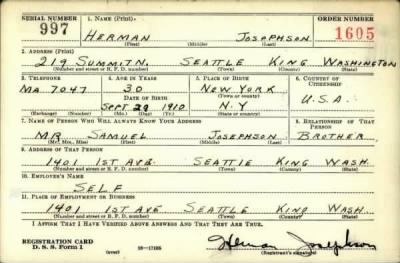 SERIAL NUMBER 1. NAME (Print) ORDER NUMBER
997 HERMAN JOSEPHSON 1605
(First) (Middle) (Last)
2. ADDRESS (Print)
219 SUMMIT N. SEATTLE KING WASHINGTON
(Number and street or R. F. D. number) (Town) (County) (State)
3. TELEPHONE 4. AGE IN YEARS 5. PLACE OF BIRTH 6. COUNTRY OF CITIZENSHIP
MA 7047 30 NEW YORK
DATE OF BIRTH (Town or county)
SEPT 29 1910 N.Y U.S.A.
(Exchange) (Number) (Mo.) (Day) (Yr.) (State or country)
7. NAME OF PERSON WHO WILL ALWAYS KNOW YOUR ADDRESS 8. RELATIONSHIP OF THAT PERSON
MR SAMUEL JOSEPHSON BROTHER
(Mr., Mrs., Miss) (First) (Middle) (Last)
9. ADDRESS OF THAT PERSON
1401 1ST AVE. SEATTLE KING WASH.
(Number and street or R. F. D. number) (Town) (County) (State)
10. EMPLOYER'S NAME
SELF
11. PLACE OF EMPLOYMENT OR BUSINESS
1401 1ST AVE SEATTLE KING WASH.
(Number and street or R. F. D. number) (Town) (County) (State)
I AFFIRM THAT I HAVE VERIFIED ABOVE ANSWERS AND THAT THEY ARE TRUE.
REGISTRATION CARD
D. S. S. Form 1 16—17105 Herman Josephson
(over) (Registrant's signature)